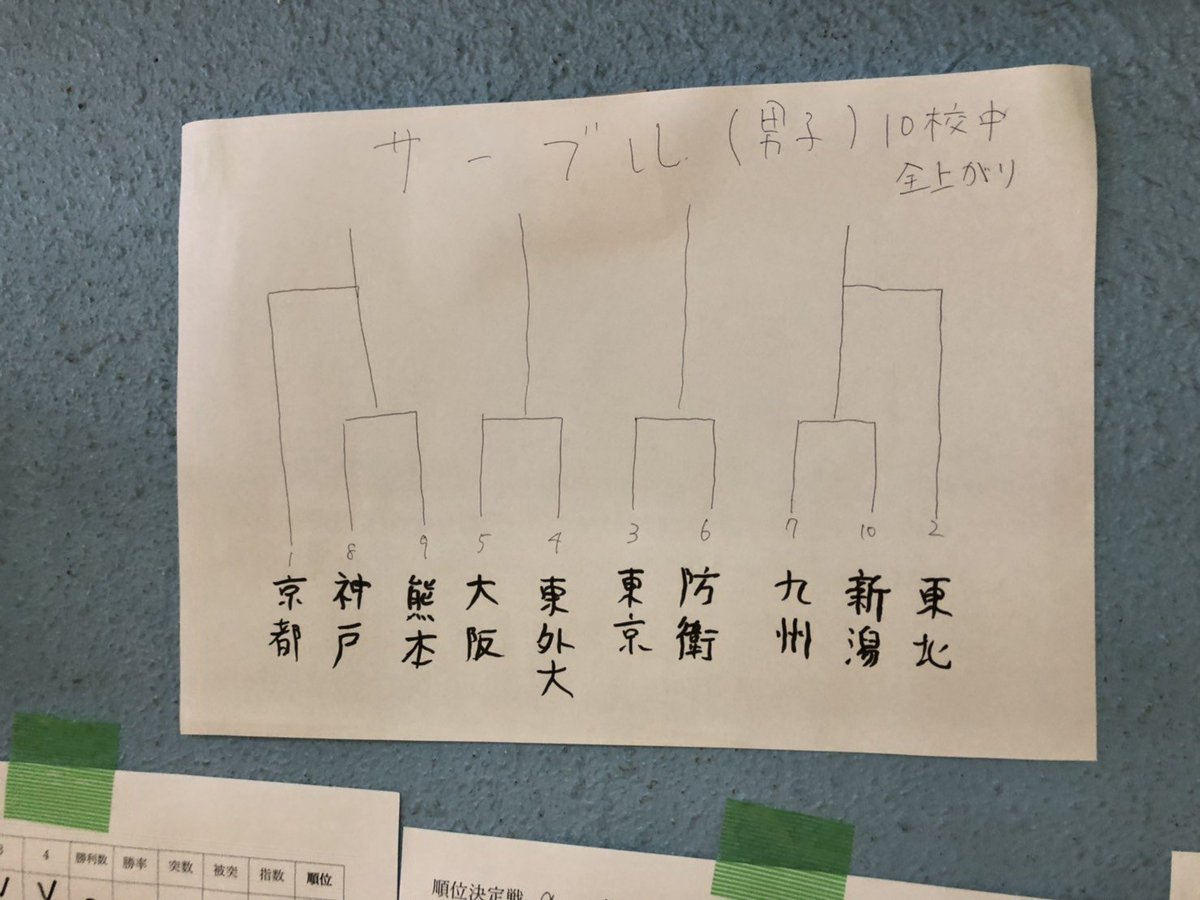 サーブル (男子) 10校中
全上がり
1 8 9 5 4 3 6 7 10 2
京都 神戸 熊本 大阪 東外大 東京 防衛 九州 新潟 東北
4 勝利数 勝率 突数 被突 指数 順位
V V
順位決定戦